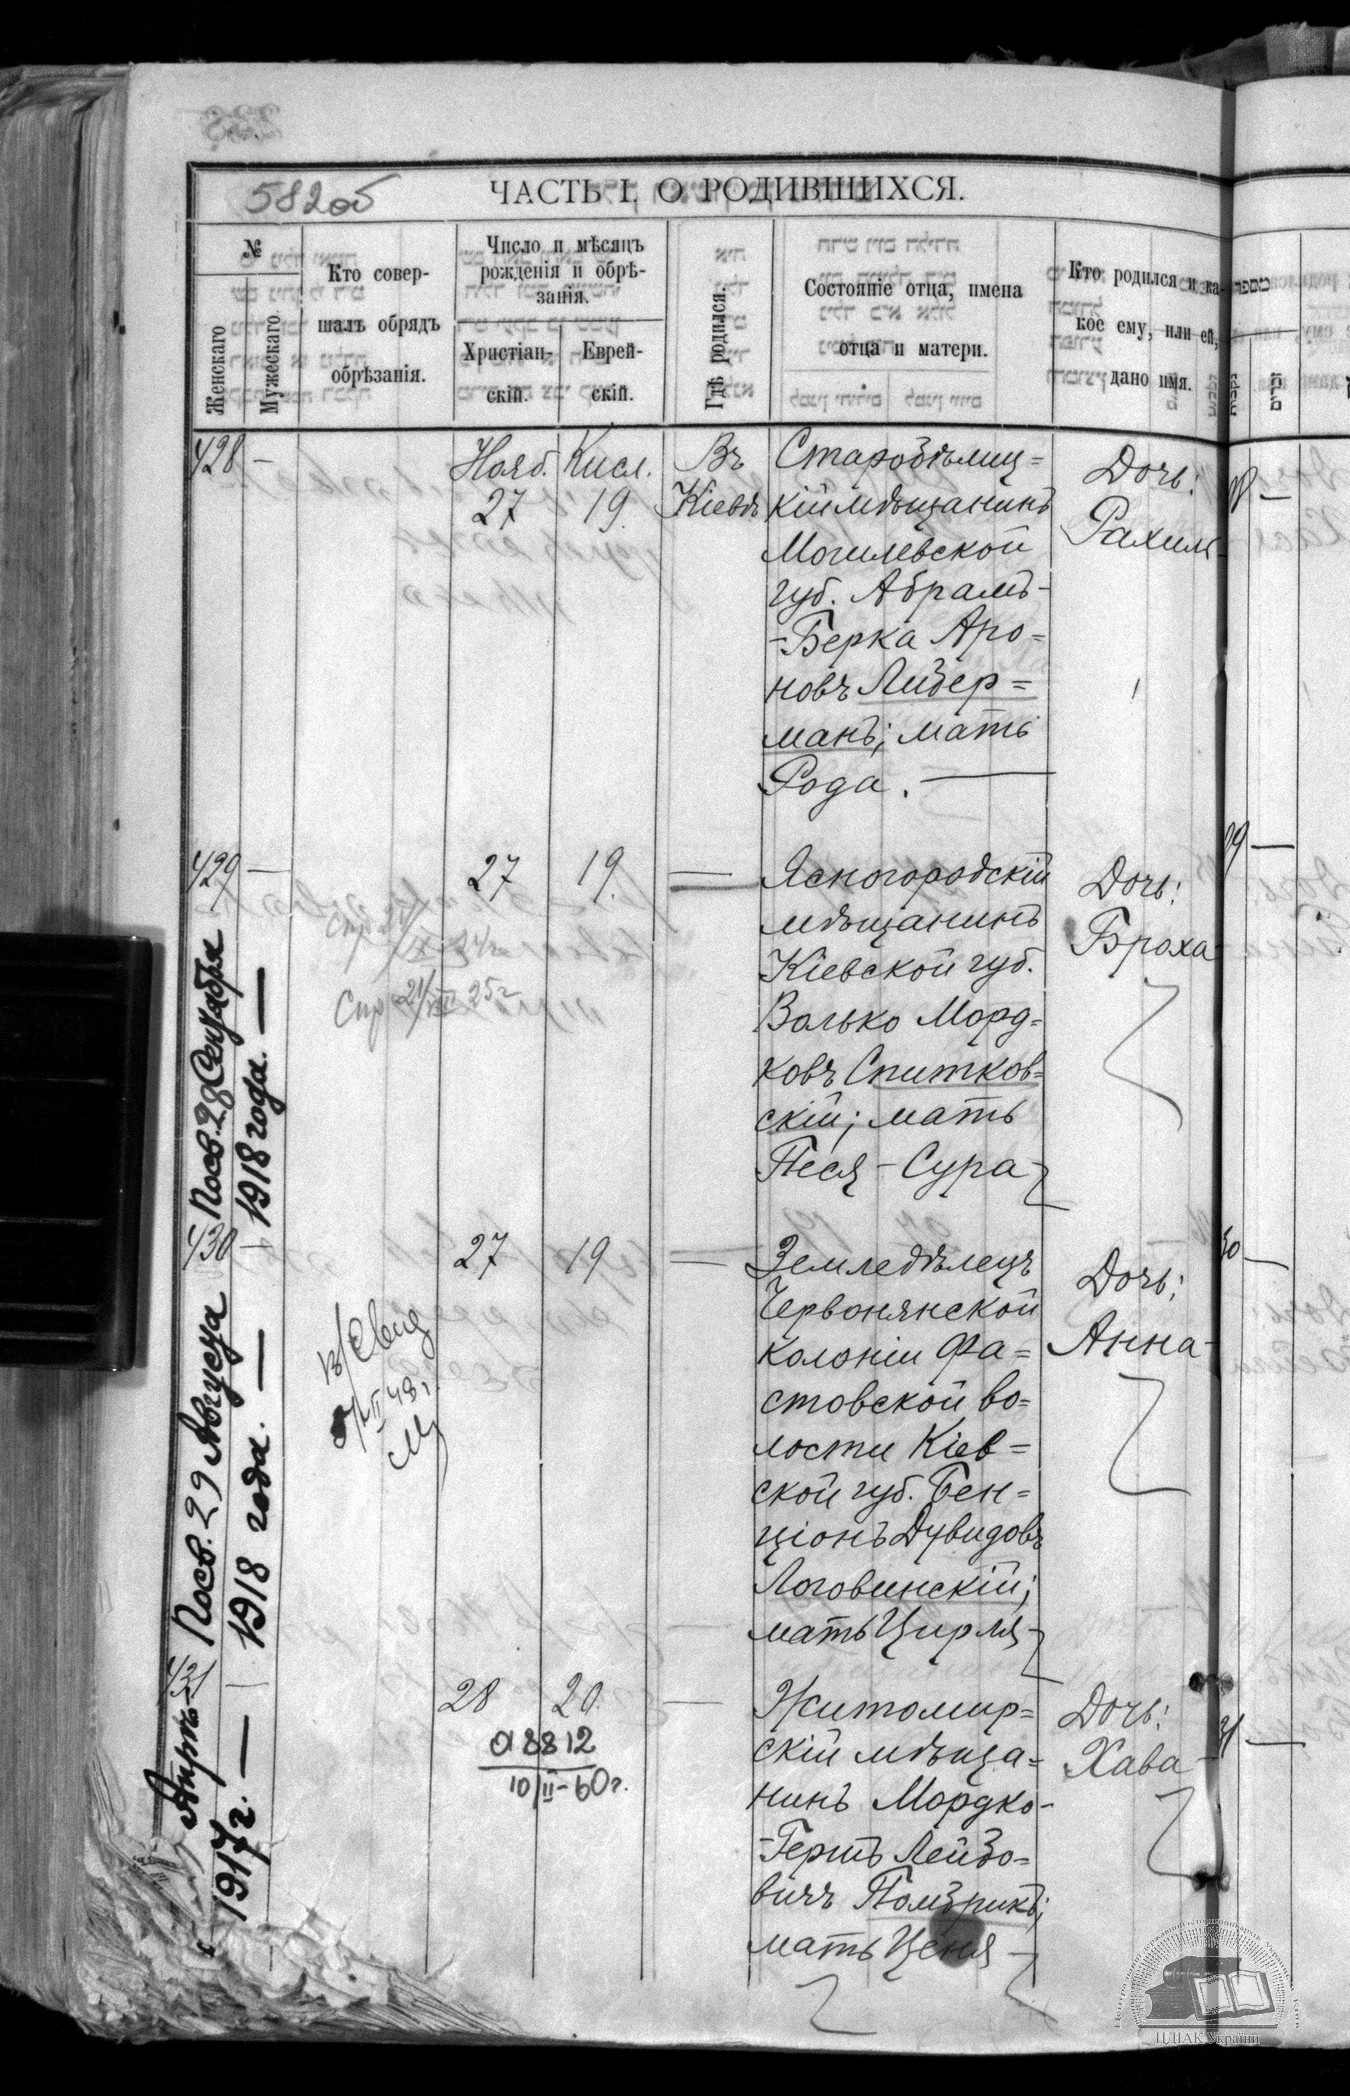 582об
ЧАСТЬ I. О РОДИВШИХСЯ.
№
Женскаго
Мужескаго
Кто совер-
шалъ обрядъ
обрѣзанія.
Число и мѣсяцъ
рожденія и обрѣ-
занія.
Христіан-
скій.
Еврей-
скій.
Гдѣ родился.
Состояніе отца, имена
отца и матери.
Кто родился и ка-
кое ему, или ей,
дано имя.
428 —
Нояб.
27
Кисл.
19.
Въ
Кіевѣ
Старобѣлиц=
кій мѣщанинъ
Могилевской
губ. Абрамъ-
-Берка Аро=
новъ Либер=
манъ; мать
Рода. —
Дочь:
Рахиль
429 —
27
19.
—
Ясногородскій
мѣщанинъ
Кіевской губ.
Волько Морд=
ковъ Спитков=
скій; мать
Песя-Сура
Дочь:
Броха
Посв. 28 Сентября
1918 года. —
430 —
27
19
—
Земледѣлецъ
Червонянской
колоніи Фа=
стовской во=
лости Кіев=
ской губ. Бен=
ціонъ Дувидовъ
Логовинскій;
мать Цирля
Дочь:
Анна
Посв. 29 Августа
1918 года. —
431 —
28
20.
—
Житомир=
скій мѣща=
нинъ Мордко-
-Гершъ Лейзо=
вичъ Помѣрикъ;
мать Ценя
Дочь:
Хава
1917 г. —
10/II-60г.
ЦДІАК України